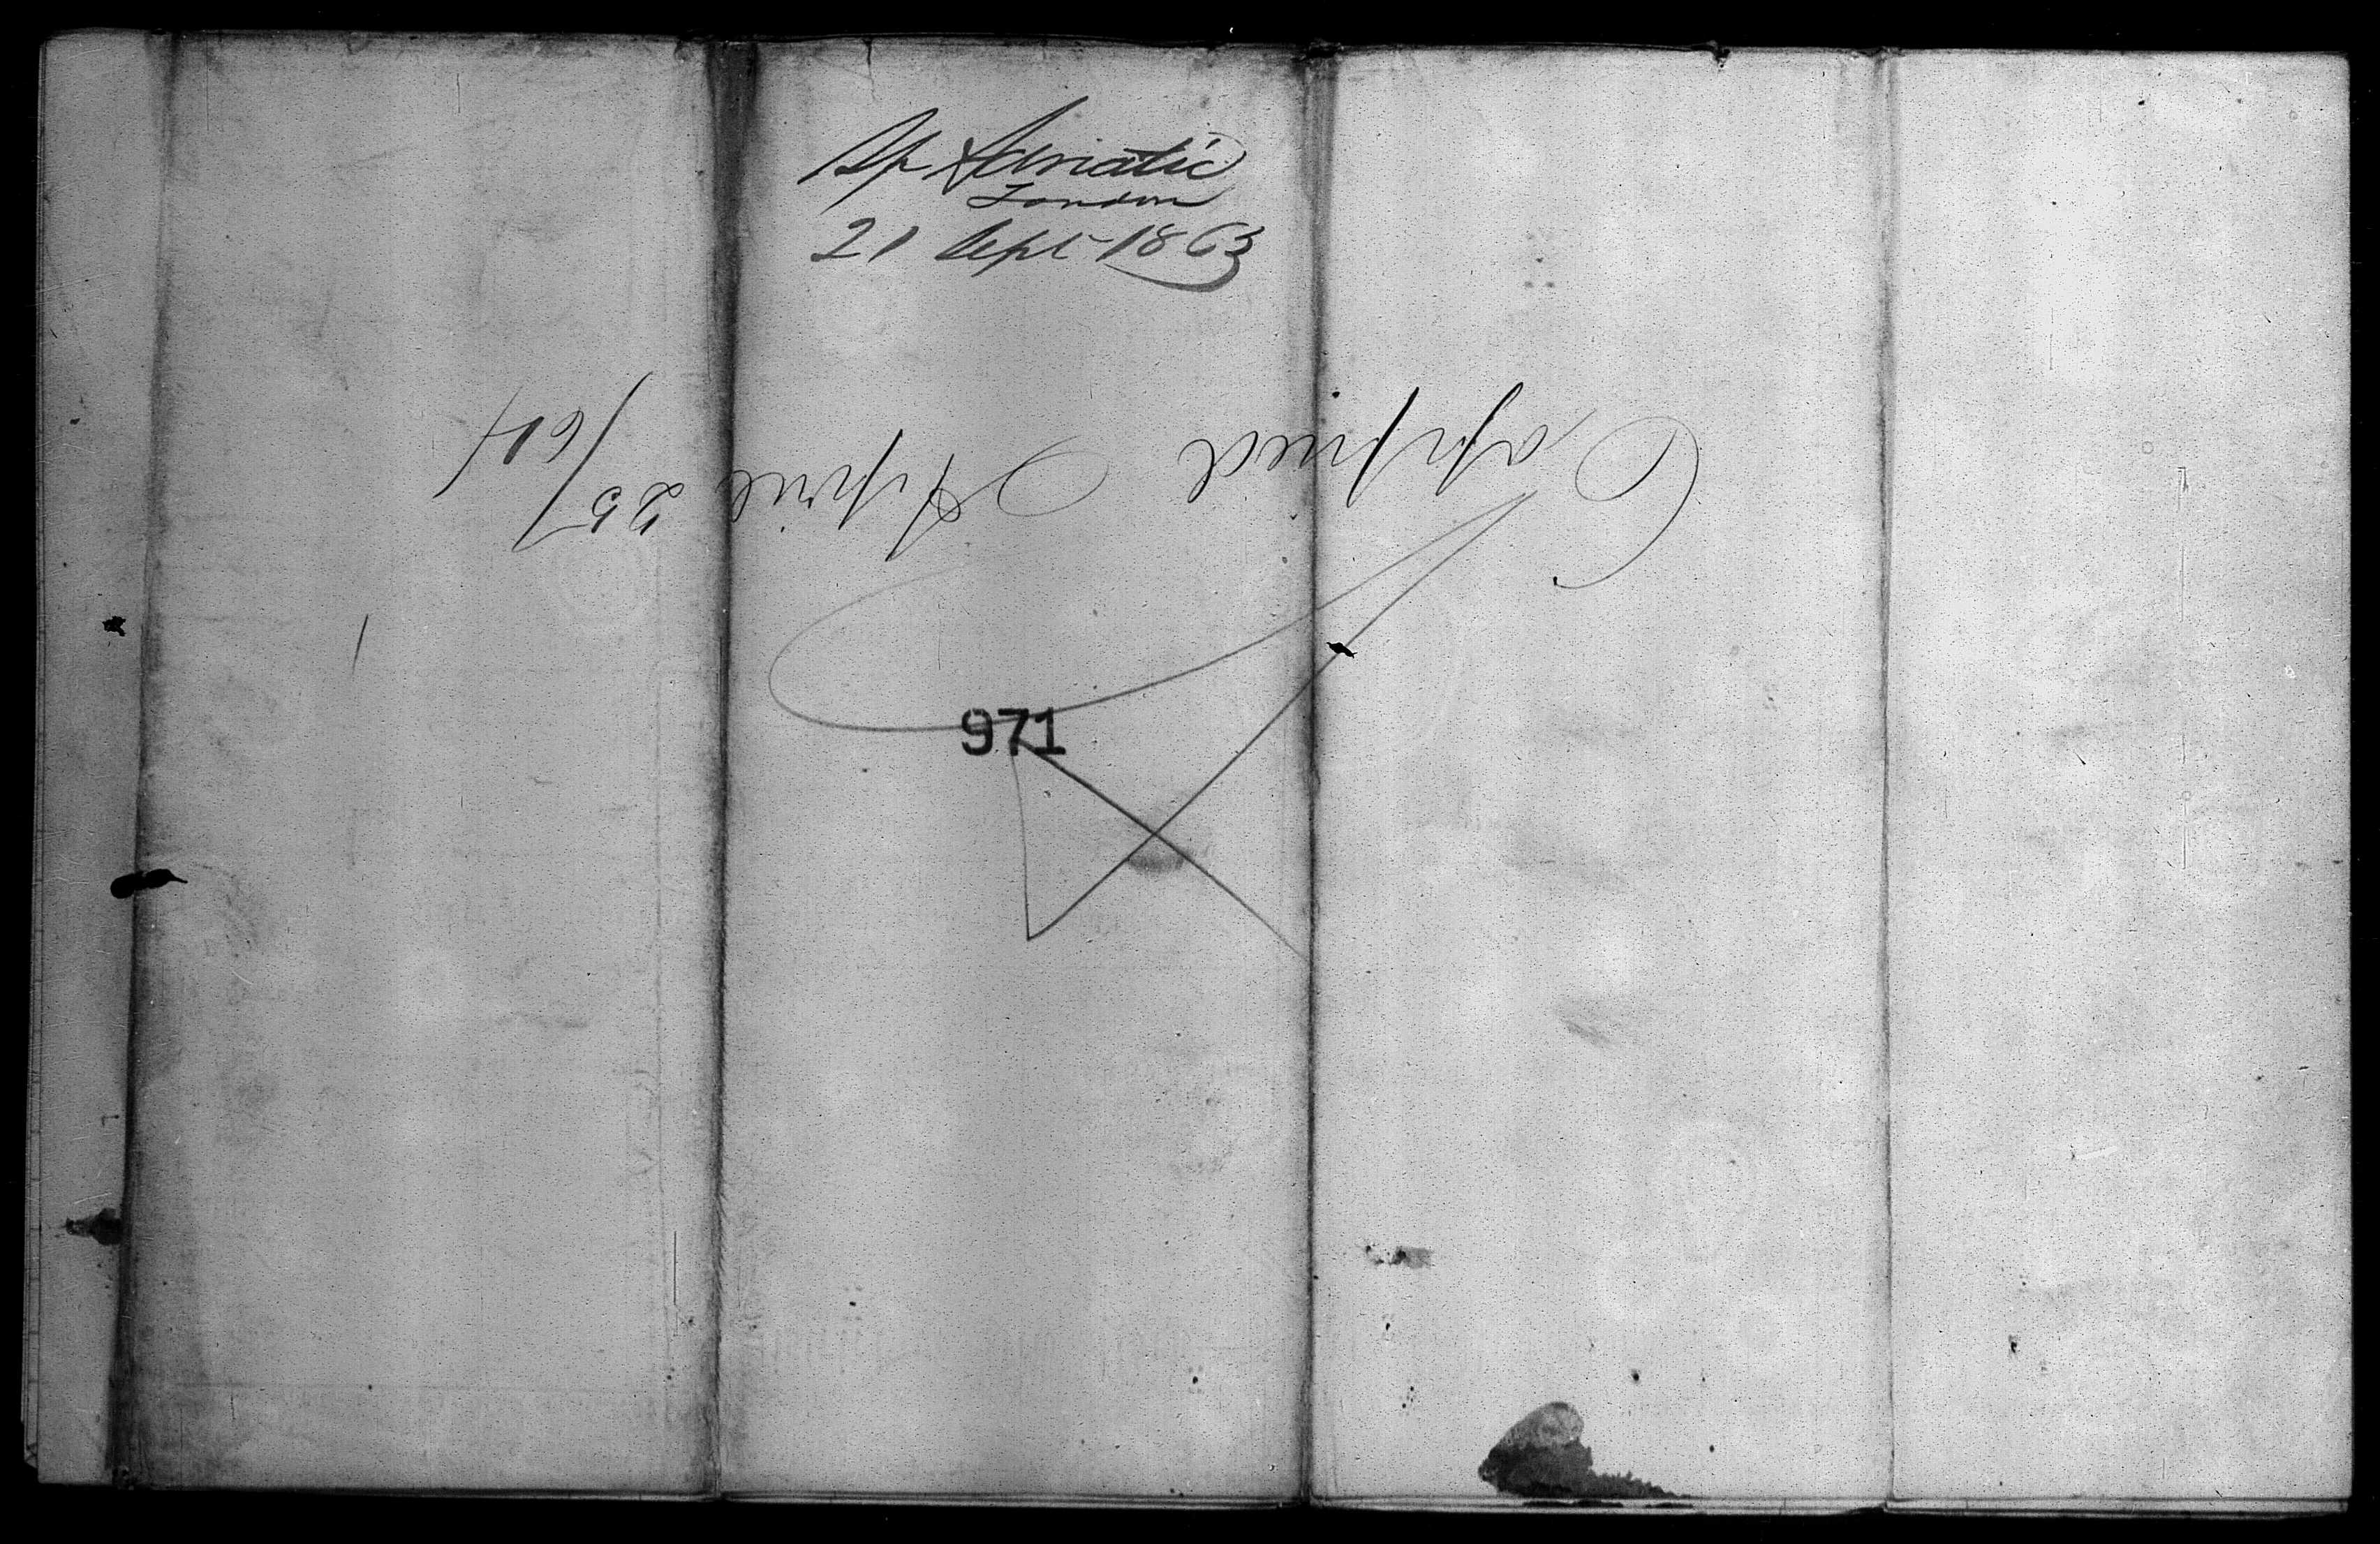 Sp Adriatic
London
21 Sept 1863
Coppied April 25/64
971